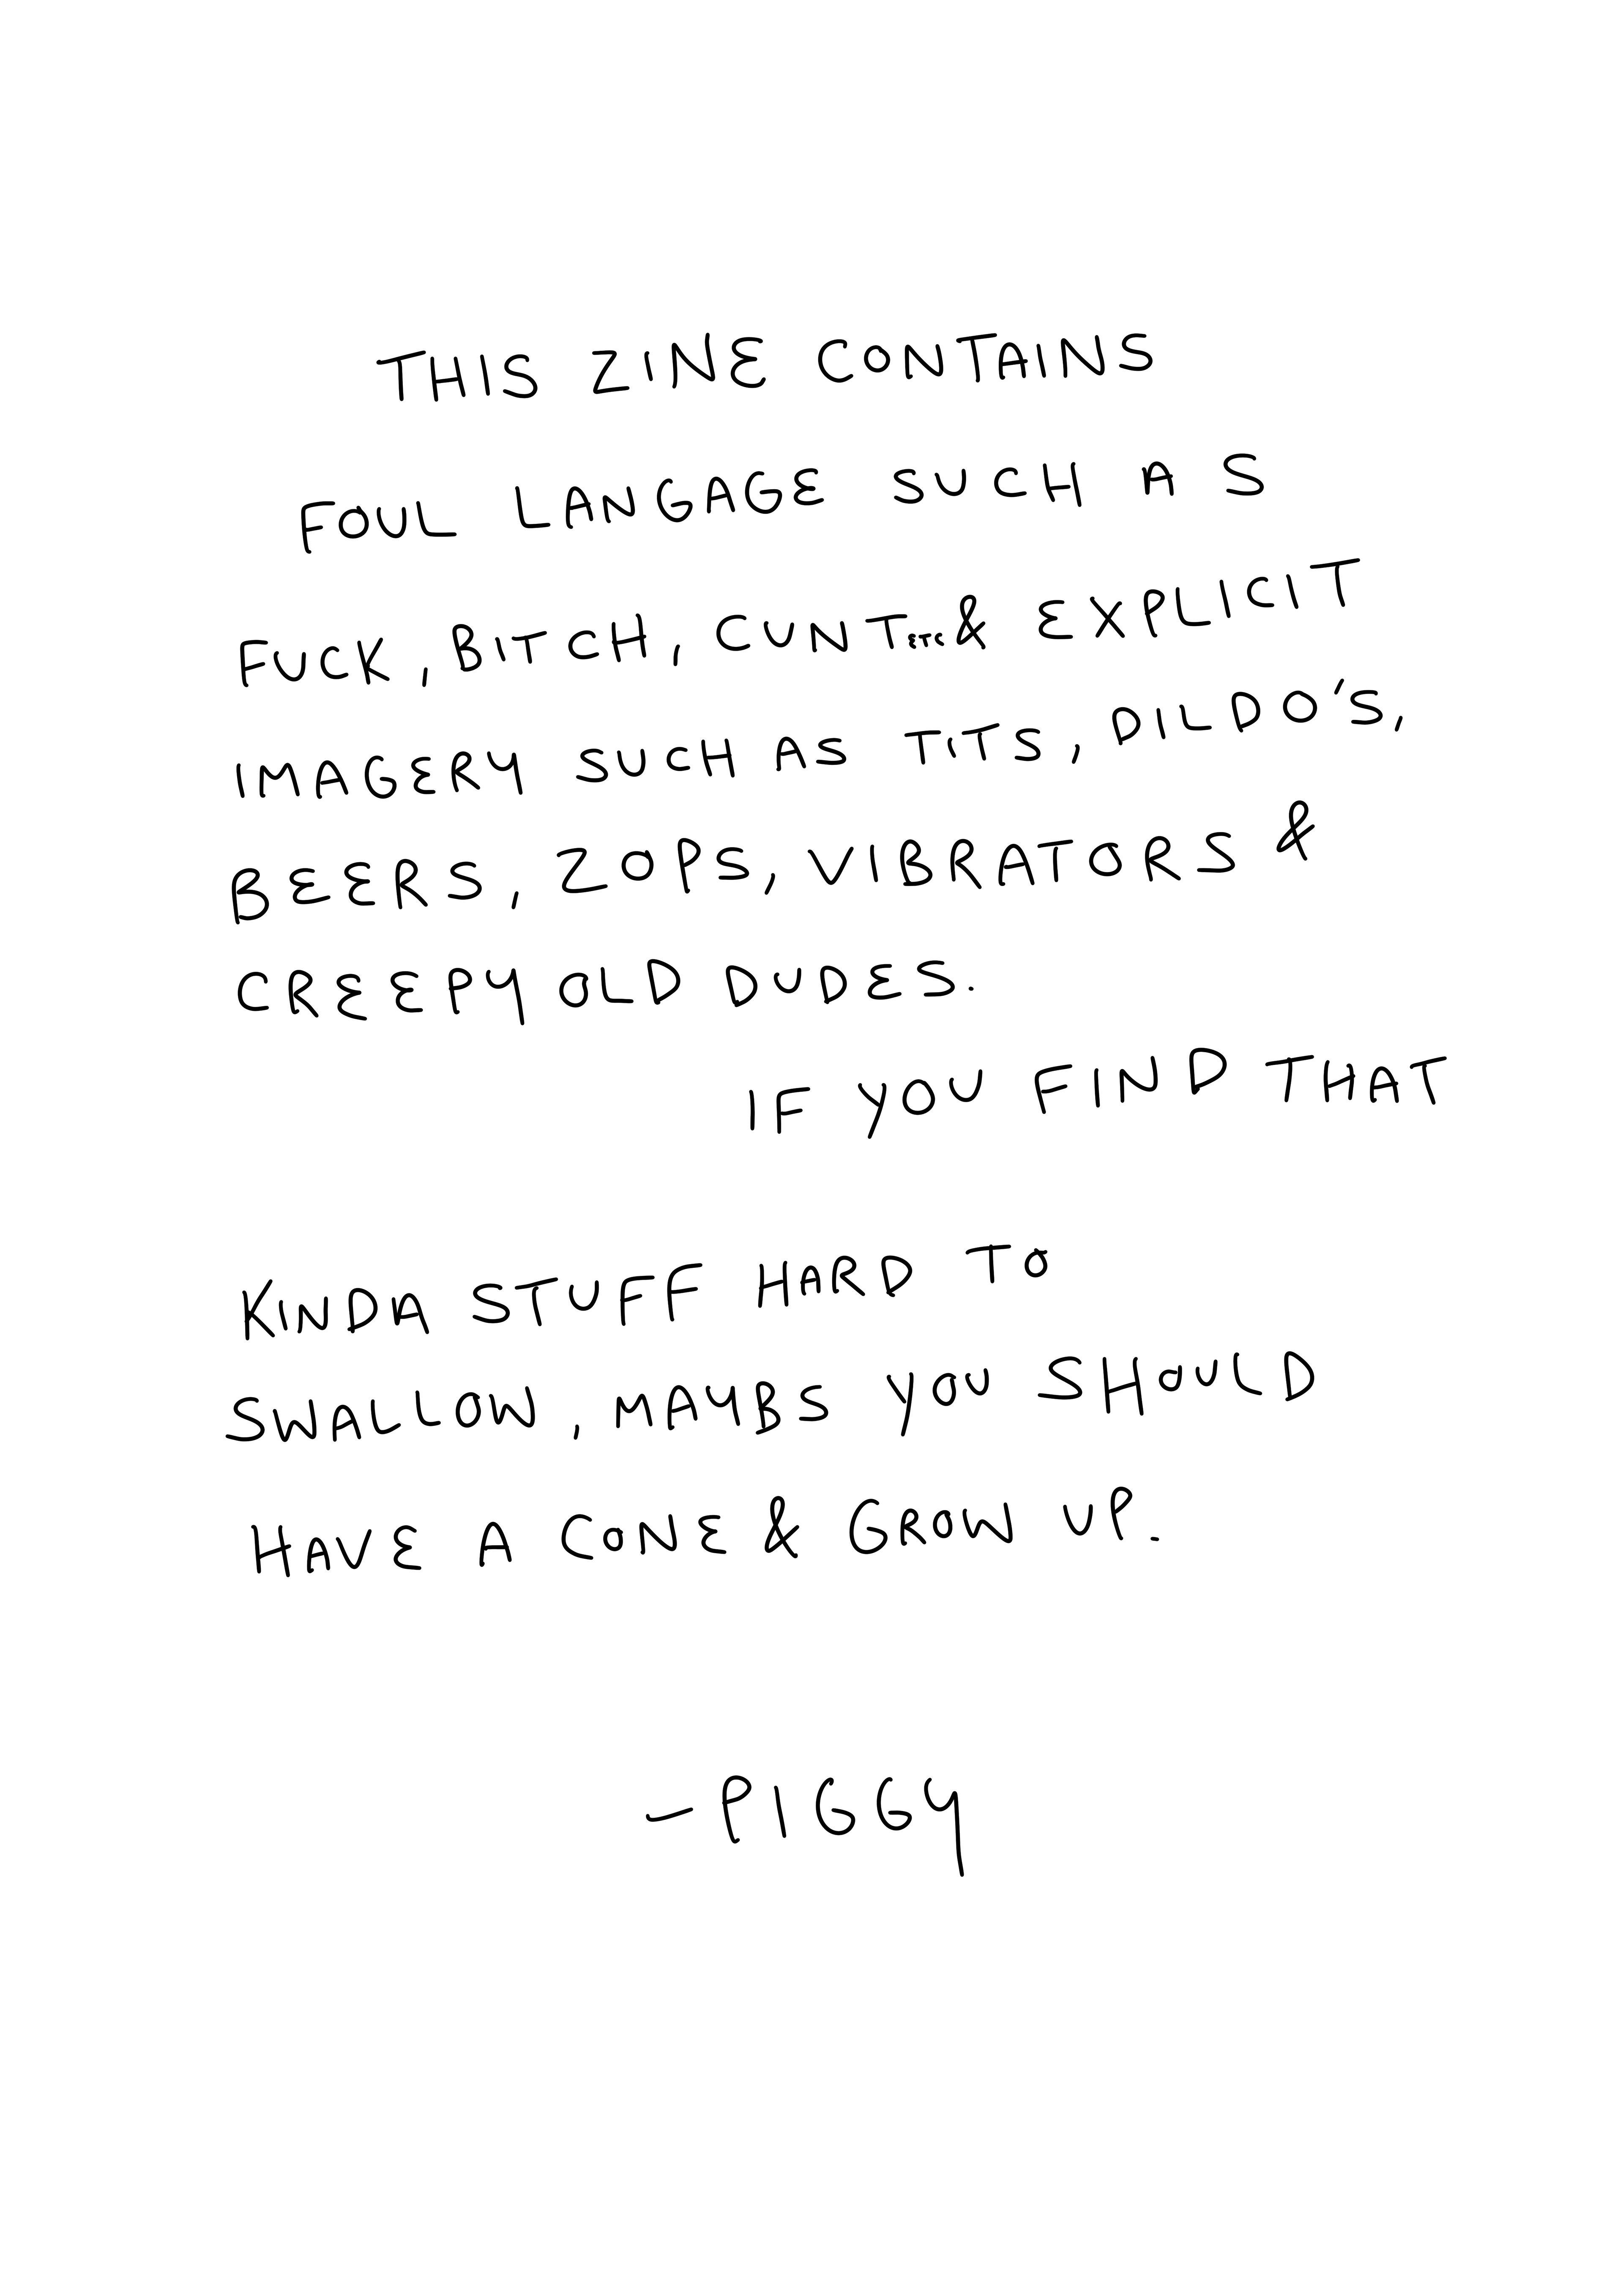 THIS ZINE CONTAINS
FOUL LANGAGE SUCH AS
FUCK, BITCH, CUNT ETC & EXPLICIT
IMAGERY SUCH AS TITS, DILDO'S,
BEERS, ZOPS, VIBRATORS &
CREEPY OLD DUDES.
IF YOU FIND THAT
KINDA STUFF HARD TO
SWALLOW, MAYBS YOU SHOULD
HAVE A CONE & GROW UP.
- PIGGY